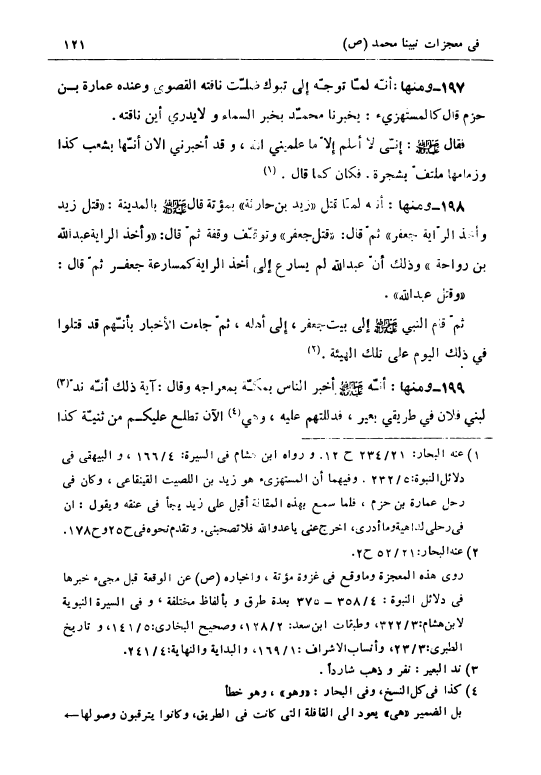 فى معجزات نبينا محمد (ص) ١٢١
١٩٧ـ ومنها: أنّه لمّا توجّه إلى تبوك ضلّت ناقته القصوى وعنده عمارة بـن
حزم قال كالمستهزىء : يخبرنا محمّد بخبر السماء و لايدري أين ناقته .
فقال ﷺ : إنّني لا أعلم إلاّ ما علّمني الله ، و قد أخبرني الان أنّها بشعب كذا
وزمامها ملتفّ بشجرة . فكان كما قال . (١)
١٩٨ـ ومنها : أنّه لمّا قتل «زيد بن حارثة» بمؤتة قال ﷺ بالمدينة : «قتل زيد
وأخذ الرّاية جعفر» ثمّ قال: «قتل جعفر» وتوقّف وقفة ثمّ قال: «وأخذ الراية عبدالله
بن رواحة » وذلك أنّ عبدالله لم يسارع إلى أخذ الراية كمسارعة جعفـر ثمّ قال :
«وقتل عبدالله» .
ثمّ قام النبي ﷺ إلى بيت جعفر ، إلى أهله ، ثمّ جاءت الأخبار بأنّهم قد قتلوا
في ذلك اليوم على تلك الهيئة . (٢)
١٩٩ـ ومنها : أنّه ﷺ أخبر الناس بمكّـة بمعراجه وقال : آية ذلك أنّه ندّ (٣)
لبني فلان في طريقي بعير ، فدللتهم عليه ، وهي (٤) الآن تطلع عليكـم من ثنيّة كذا
١) عنه البحار: ٢٣٤/٢١ ح ١٢. و رواه ابن هشام فى السيرة: ١٦٦/٤ ، و البيهقى فى
دلائل النبوة: ٢٣٢/٥ . وفيهما أن المستهزىء هو زيد بن اللصيت القينقاعى ، وكان فى
رحل عمارة بن حزم ، فلما سمع بهذه المقالة أقبل على زيد يجأ فى عنقه ويقول : ان
فى رحلى لداهية وما أدرى، اخرج عنى يا عدو الله فلا تصحبنى. وتقدم نحوه فى ح٢٥ و ح١٧٨.
٢) عنه البحار: ٥٢/٢١ ح٢.
روى هذه المعجزة وماوقع فى غزوة مؤتة ، واخباره (ص) عن الوقعة قبل مجىء خبرها
فى دلائل النبوة : ٣٥٨/٤ ـ ٣٧٥ بعدة طرق و بألفاظ مختلفة ، و فى السيرة النبوية
لابن هشام: ٣٢٢/٣، وطبقات ابن سعد: ١٢٨/٢، وصحيح البخارى: ١٤١/٥، و تاريخ
الطبرى: ٢٣/٣، وأنساب الاشراف : ١٦٩/١، والبداية والنهاية: ٢٤١/٤.
٣) ند البعير : نفر و ذهب شارداً .
٤) كذا فى كل النسخ، وفى البحار : «وهو» ، وهو خطأ
بل الضمير «هى» يعود الى القافلة التى كانت فى الطريق، وكانوا يترقبون وصولها ←